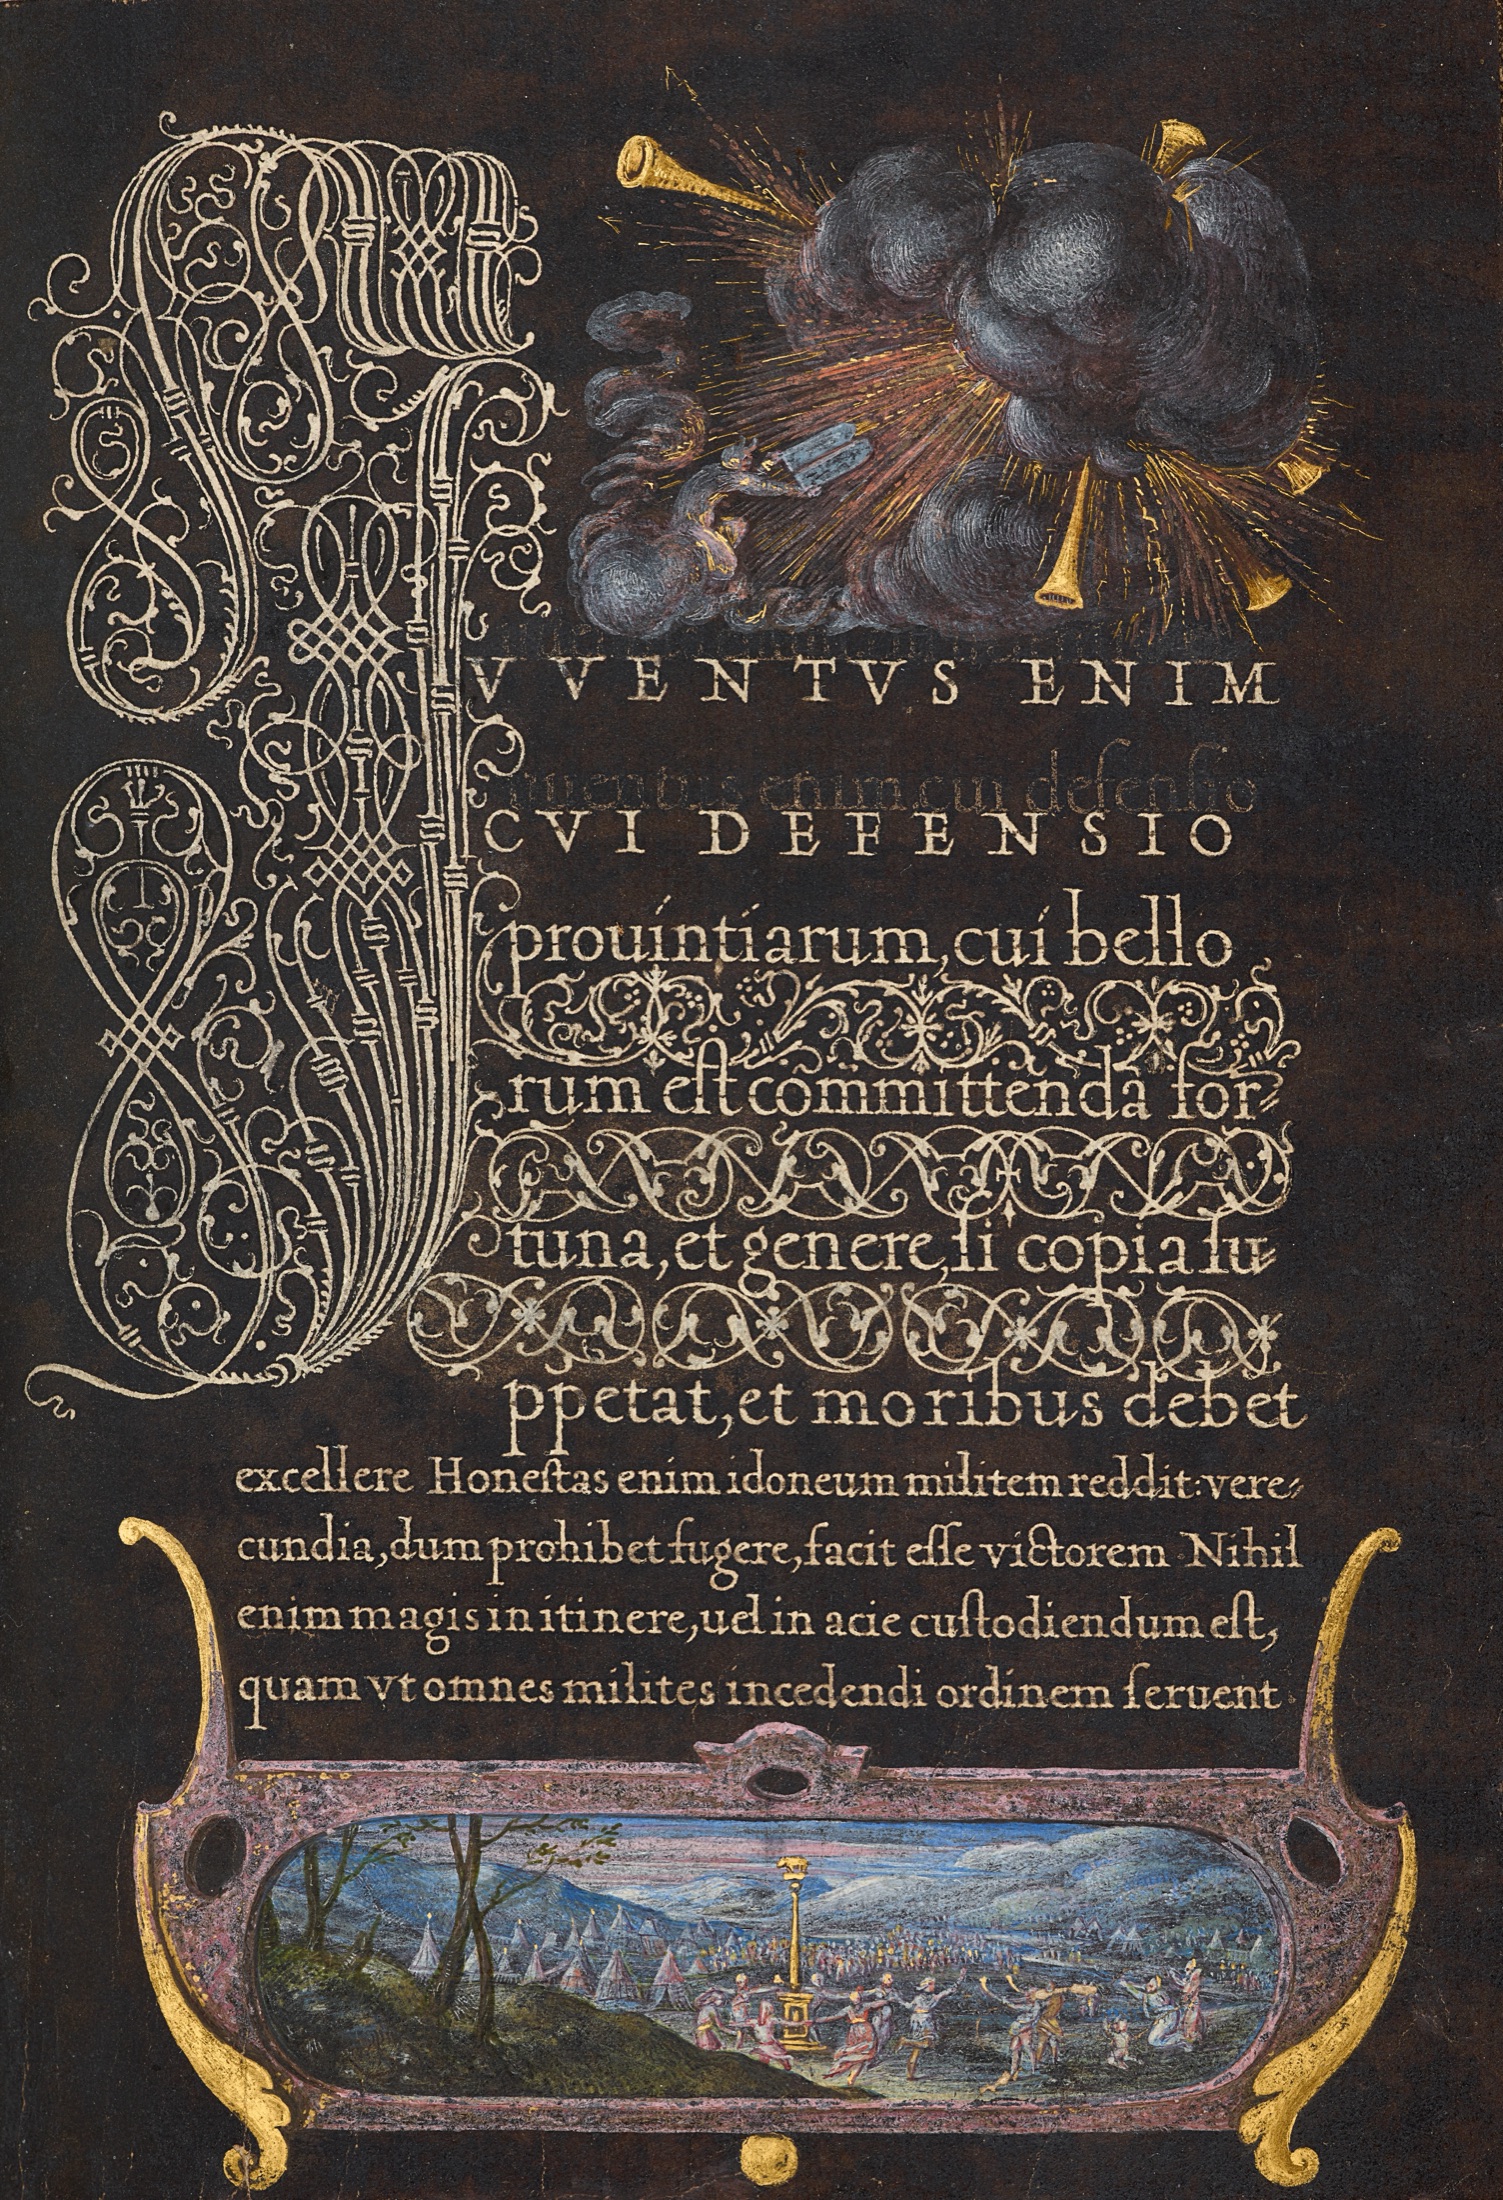 IVVENTVS ENIM
iuuentus enim cui defensio
CVI DEFENSIO
prouintiarum, cui bello
rum est committenda for-
tuna, et genere, si copia su-
ppetat, et moribus debet
excellere Honestas enim idoneum militem reddit: vere-
cundia, dum prohibet fugere, facit esse victorem Nihil
enim magis in itinere, uel in acie custodiendum est,
quam vt omnes milites incedendi ordinem seruent.